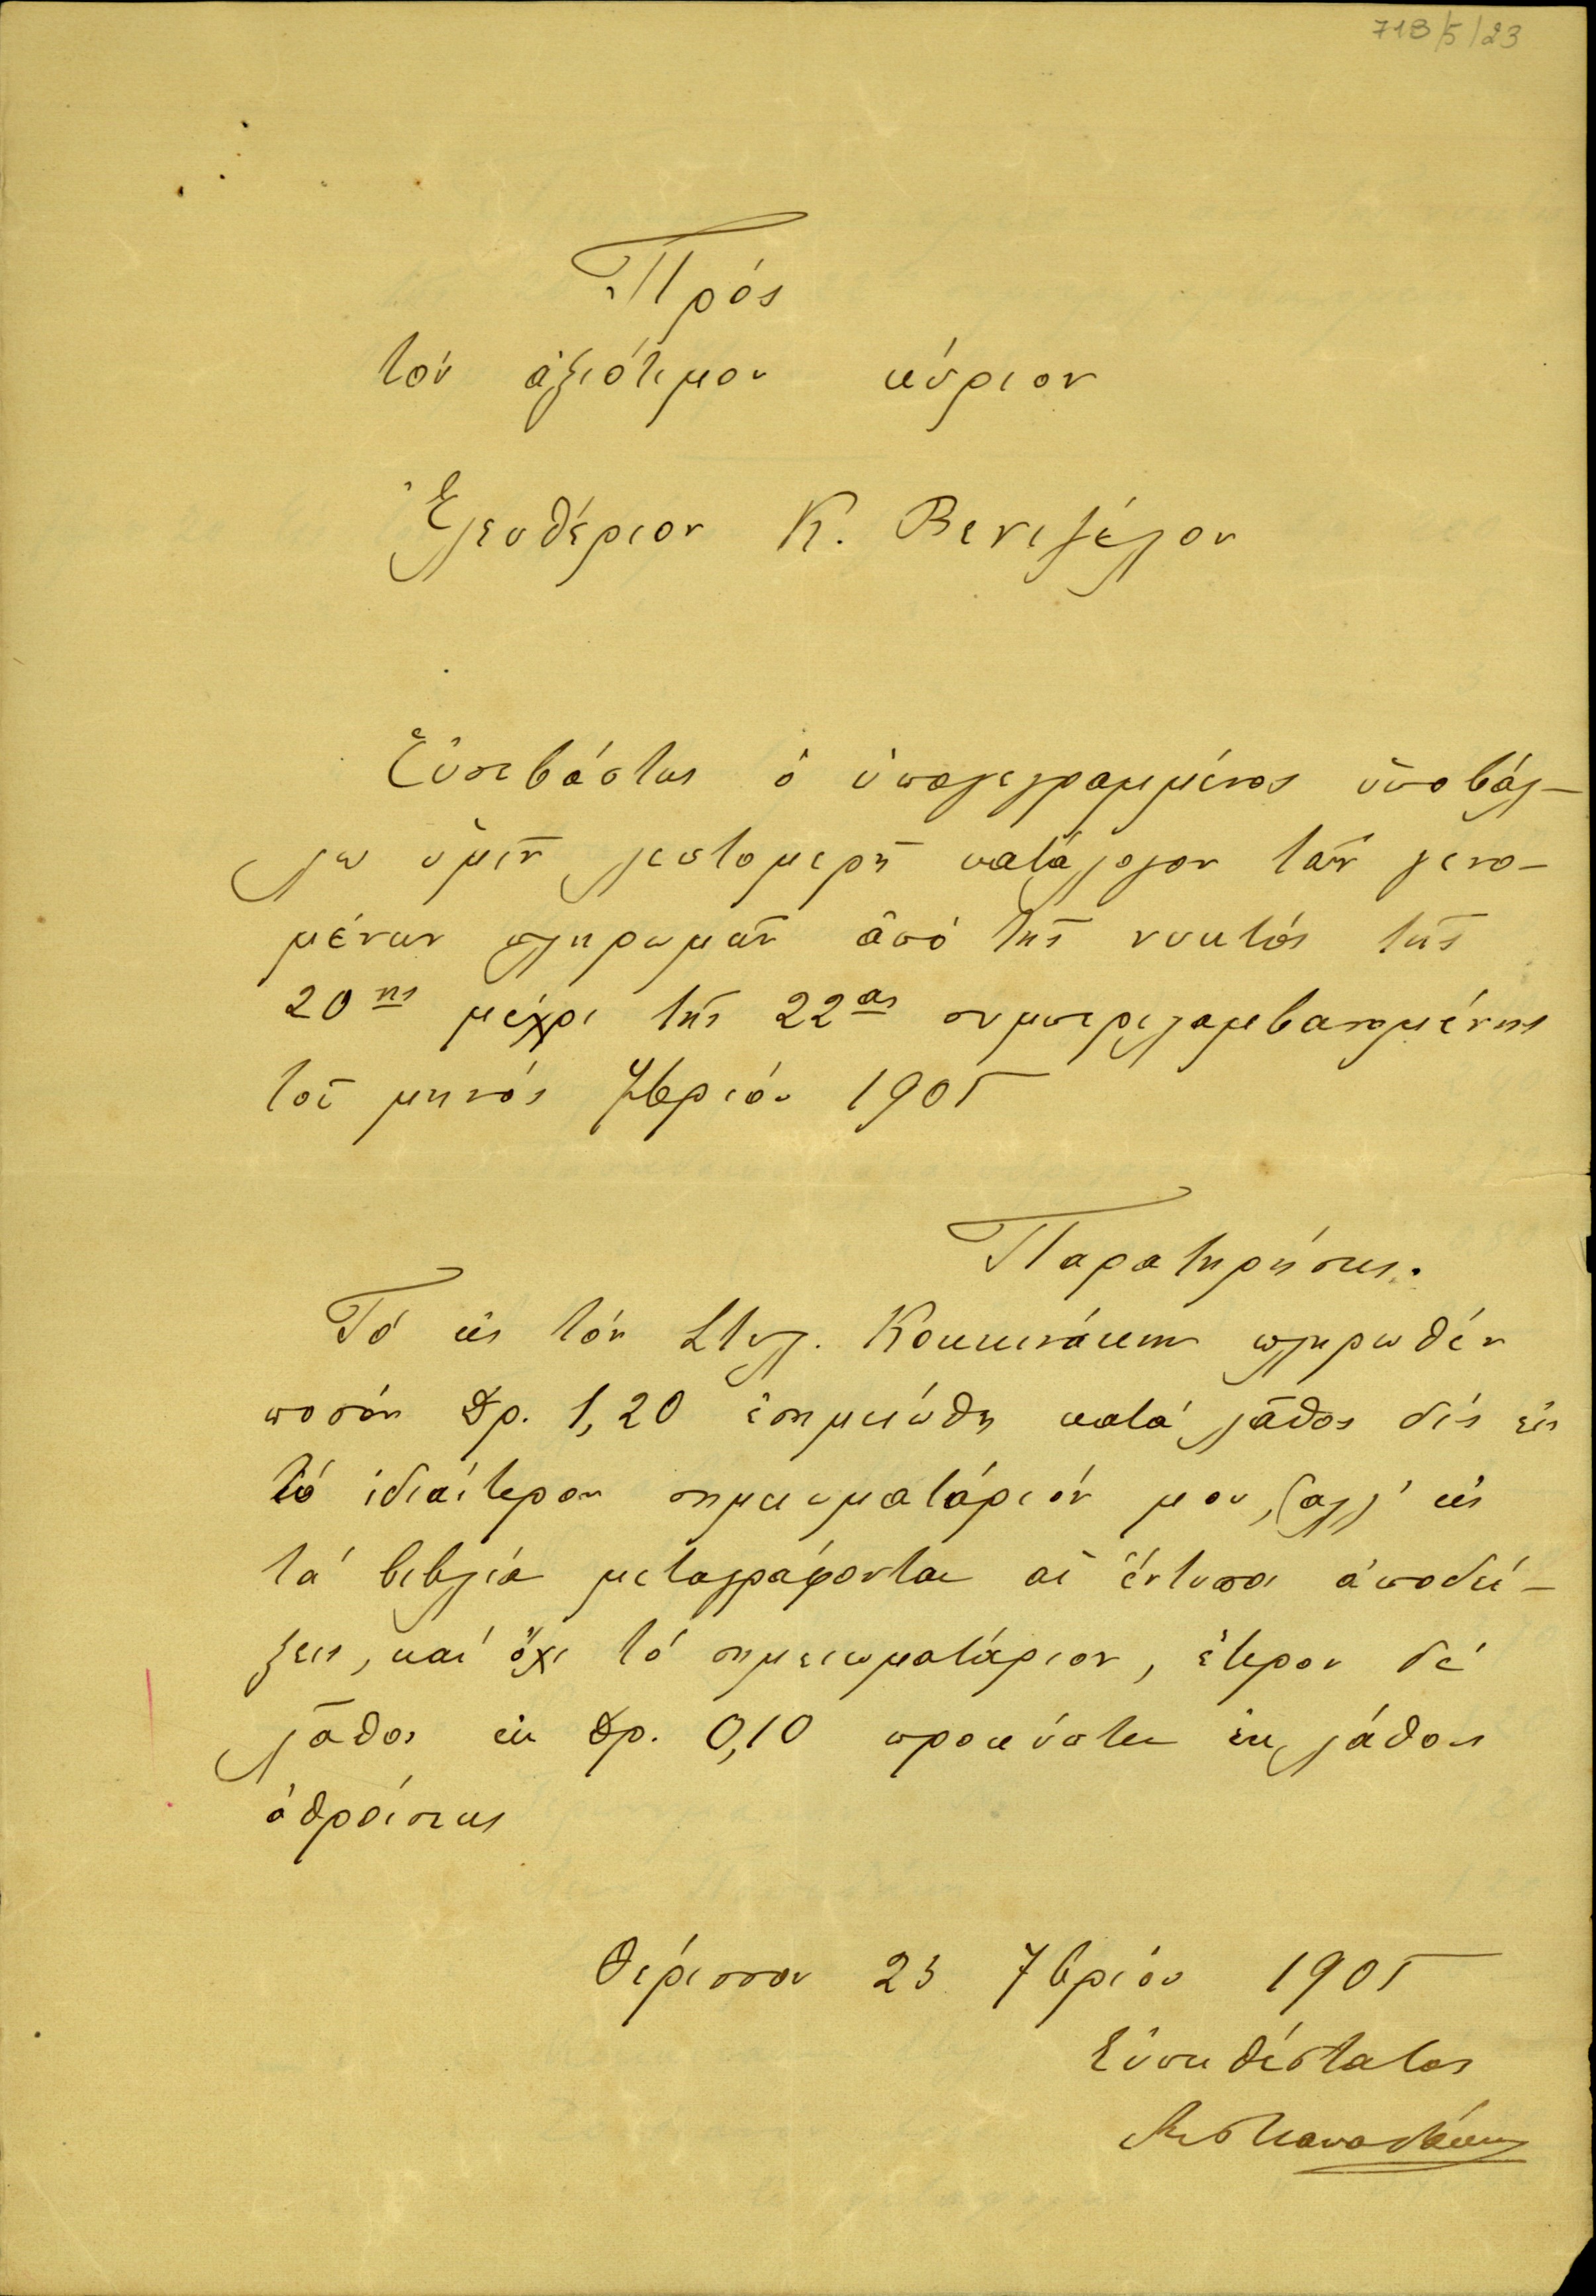 718/5/23
Πρός
τόν ἀξιότιμον κύριον
Ἐλευθέριον Κ. Βενιζέλον
Εὐσεβάστως ὁ ὑπογεγραμμένος ὑποβάλ-
λω ὑμῖν λεπτομερῆ κατάλογον τῶν γενο-
μένων πληρωμῶν ἀπό τῆς νυκτός τῆς
20ης μέχρι τῆς 22ας συμπεριλαμβανομένης
τοῦ μηνός 7βρίου 1905
Παρατηρήσεις.
Τό εἰς τόν Στυλ. Κουκινάκην πληρωθέν
ποσόν Δρ. 1,20 ἐσημειώθη κατά λᾶθος δίς εἰς
τό ἰδιαίτερον σημειωματάριόν μου, (ἀλλ' εἰς
τά βιβλία μεταγράφονται αἱ ἔντυποι ἀποδεί-
ξεις, καί ὄχι τό σημειωματάριον, ἕτερον δέ
λᾶθος ἐκ Δρ. 0,10 προκύπτει ἐκ λάθους
ἀθροίσεως
Θέρισσον 23 7βρίου 1905
Εὐπειθέστατος